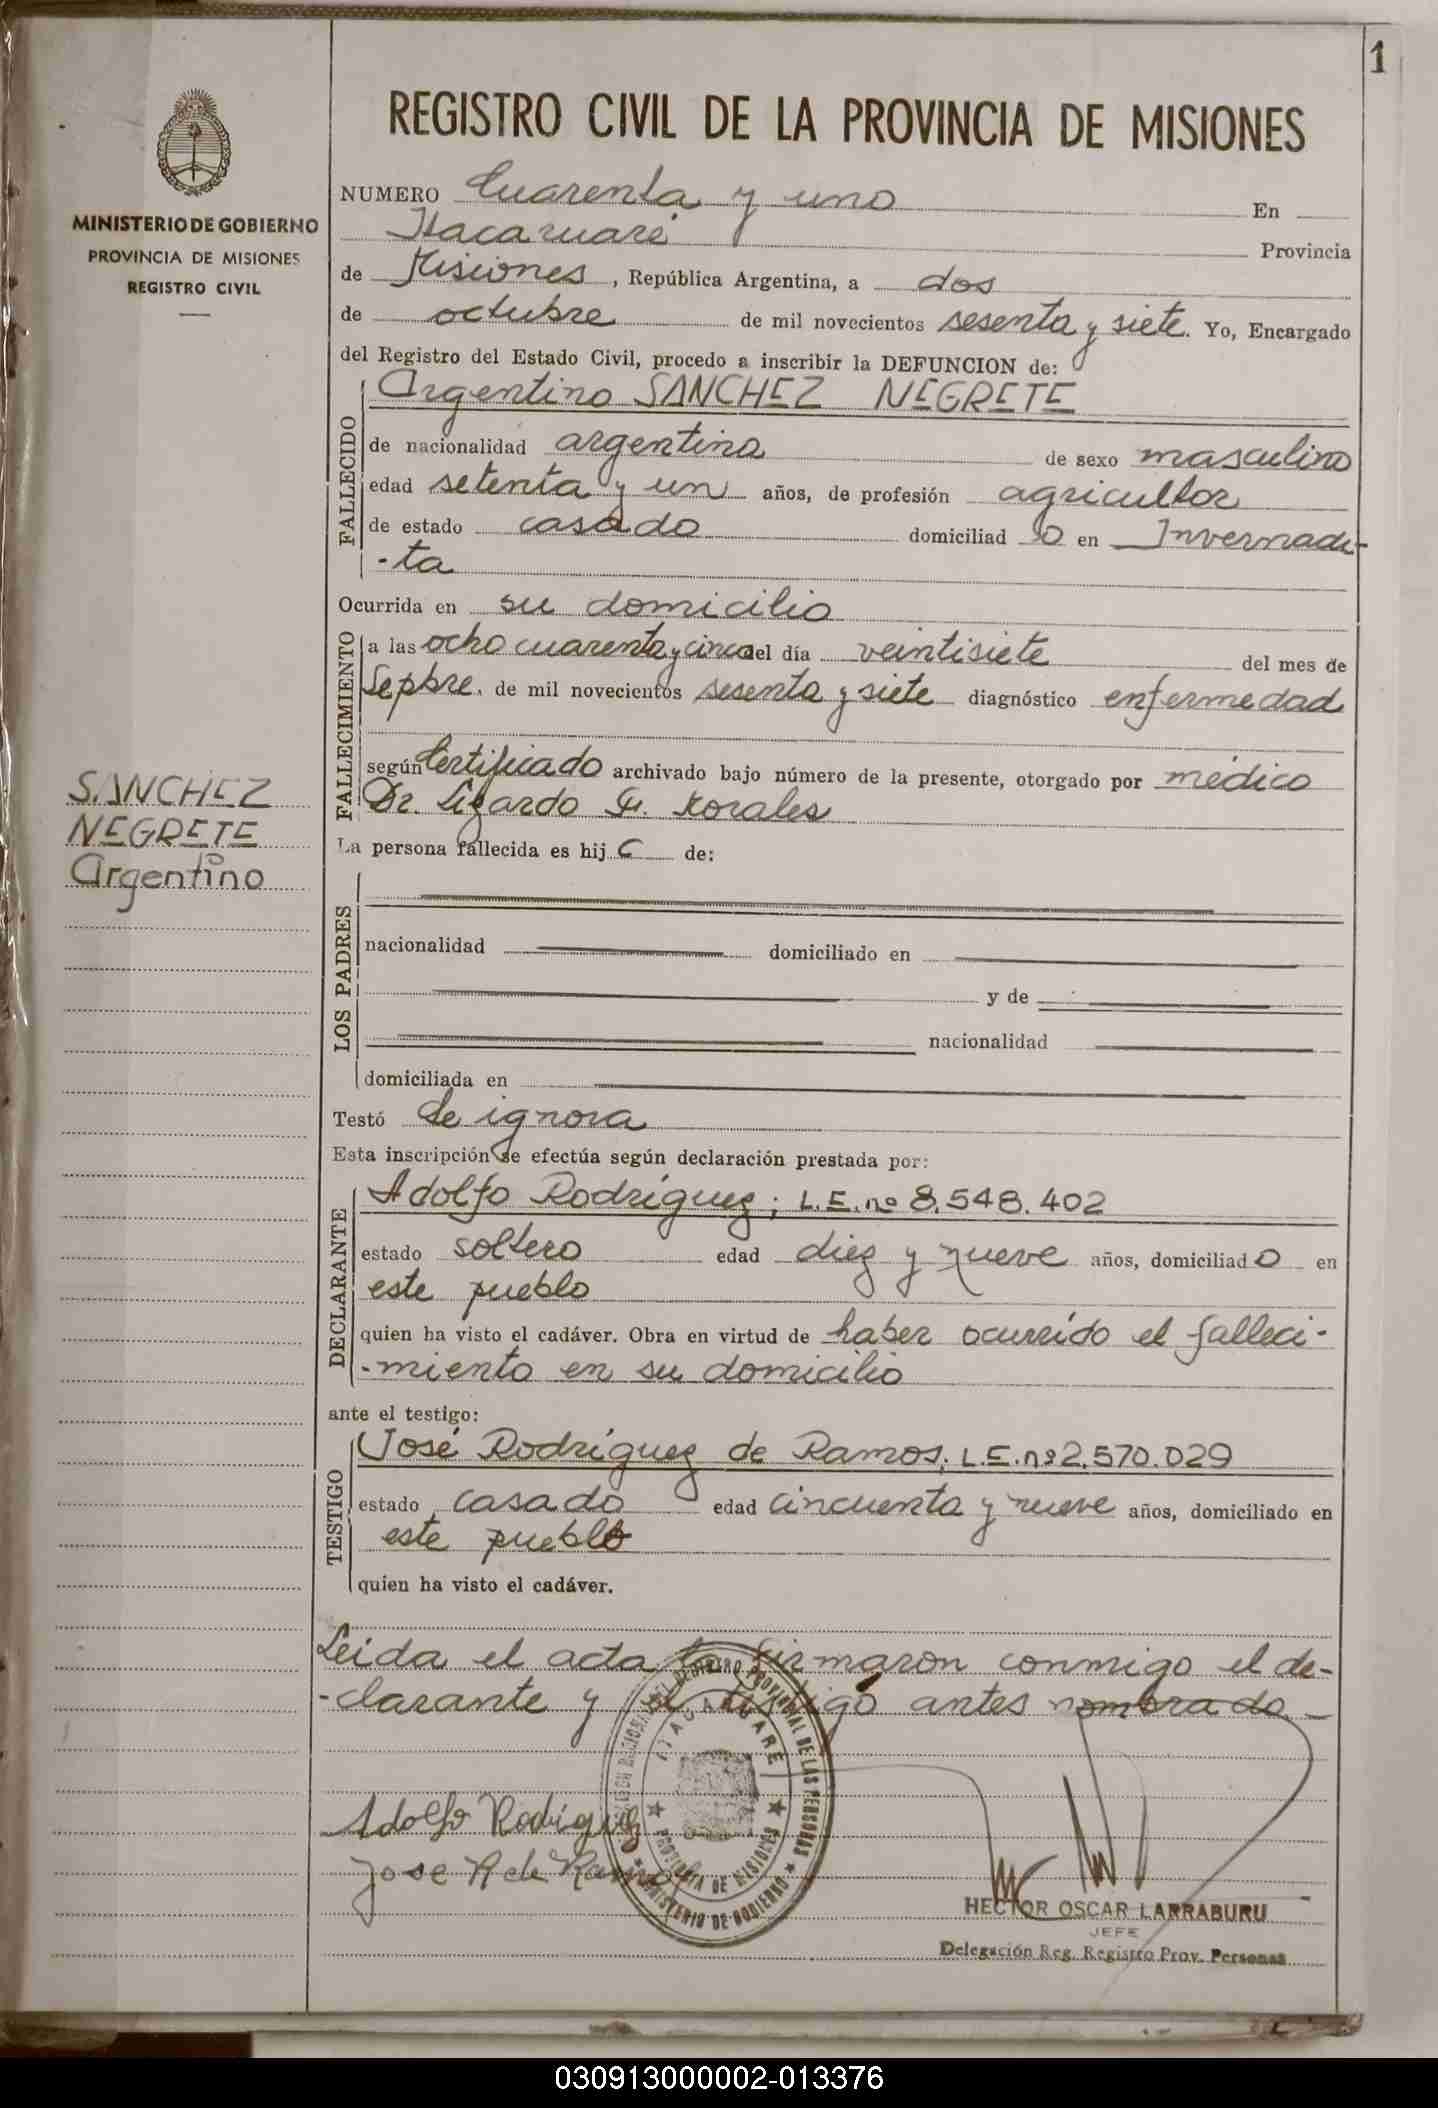 1
REGISTRO CIVIL DE LA PROVINCIA DE MISIONES
MINISTERIO DE GOBIERNO
PROVINCIA DE MISIONES
REGISTRO CIVIL
NUMERO Cuarenta y uno En
Itacaruaré Provincia
de Misiones, República Argentina, a dos
de octubre de mil novecientos sesenta y siete. Yo, Encargado
del Registro del Estado Civil, procedo a inscribir la DEFUNCION de:
FALLECIDO
Argentino SANCHEZ NEGRETE
de nacionalidad argentina de sexo masculino
edad setenta y un años, de profesión agricultor
de estado casado domiciliad o en Invernadi-
-ta
Ocurrida en su domicilio
FALLECIMIENTO
a las ocho cuarenta y cinco del día veintisiete del mes de
Sepbre. de mil novecientos sesenta y siete diagnóstico enfermedad
según Certificado archivado bajo número de la presente, otorgado por médico
Dr. Lizardo F. Morales
SANCHEZ
NEGRETE
Argentino
La persona fallecida es hij o de:
LOS PADRES
nacionalidad domiciliado en
y de
nacionalidad
domiciliada en
Testó Se ignora
Esta inscripción se efectúa según declaración prestada por:
DECLARANTE
Adolfo Rodríguez; L.E. nº 8.548.402
estado soltero edad diez y nueve años, domiciliad o en
este pueblo
quien ha visto el cadáver. Obra en virtud de haber ocurrido el falleci-
-miento en su domicilio
ante el testigo:
TESTIGO
José Rodríguez de Ramos, L.E. nº 2.570.029
estado casado edad cincuenta y nueve años, domiciliado en
este pueblo
quien ha visto el cadáver.
Leida el acta la firmaron conmigo el de-
-clarante y el testigo antes nombrado
REGISTRO PROVINCIAL DE LAS PERSONAS
ITACARUARE
PROVINCIA DE MISIONES
MINISTERIO DE GOBIERNO
Adolfo Rodriguez
Jose R de Ramos
HECTOR OSCAR LARRABURU
JEFE
Delegación Reg. Registro Prov. Personas
030913000002-013376